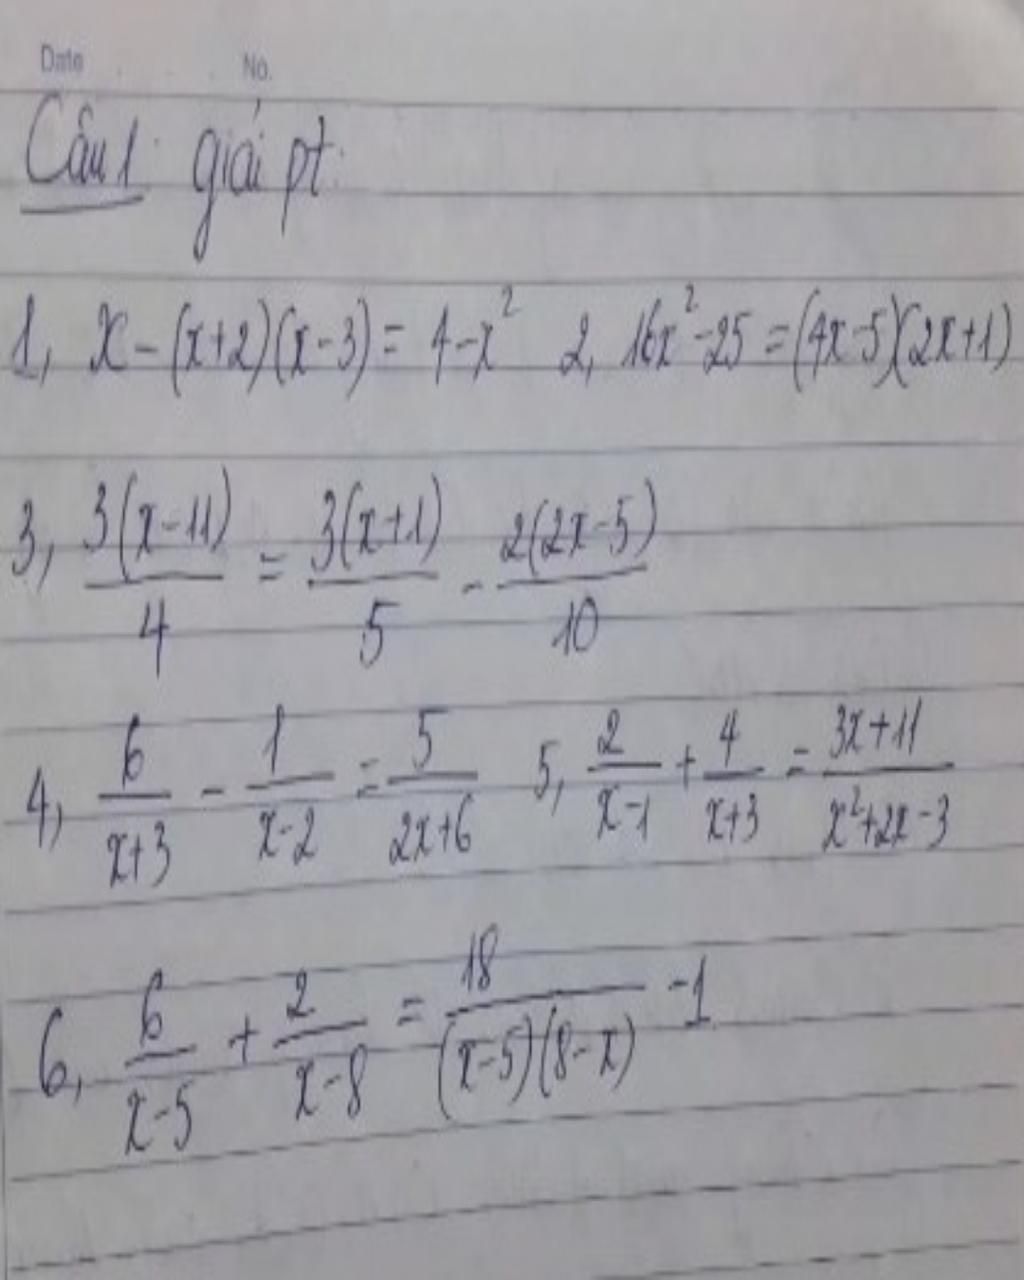 Date No.
Câu 1: giải pt:
1, x - (x+2)(x-3) = 4 - x² 2, 16x² - 25 = (4x-5)(2x+1)
3, 3(x-11)/4 = 3(x+1)/5 - 2(2x-5)/10
4, 6/(x+3) - 1/(x-2) = 5/(2x+6) 5, 2/(x-1) + 4/(x+3) = (3x+11)/(x²+2x-3)
6, 6/(x-5) + 2/(x-8) = 18/((x-5)(8-x)) - 1